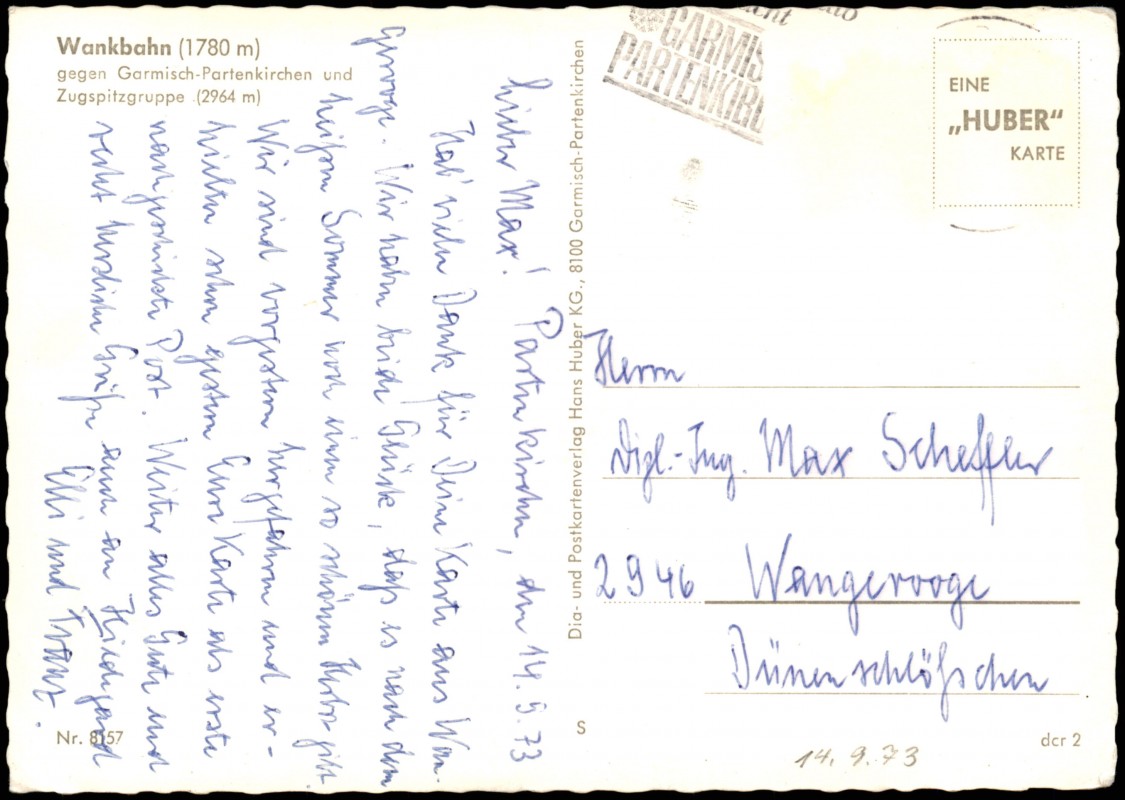 Wankbahn (1780 m)
gegen Garmisch-Partenkirchen und
Zugspitzgruppe (2964 m)
Lieber Max! Partenkirchen, den 14.9.73
Hab' vielen Dank für Deine Karte aus Wan-
gerooge. Wir haben beide Glück, daß es nach dem
heißen Sommer noch einen so schönen Herbst gibt
Wir sind vorgestern hergefahren und er-
hielten schon gestern Eure Karte als erste
nachgeschickte Post. Weiter alles Gute und
recht herzliche Grüße auch an Hildegard
Elli und Franz.
Nr. 8157
Dia- und Postkartenverlag Hans Huber KG., 8100 Garmisch-Partenkirchen
S
GARMIS
PARTENKIR
EINE
„HUBER"
KARTE
Herrn
Dipl.-Ing. Max Scheffler
2946 Wangerooge
Dünenschlößchen
14.9.73
dcr 2